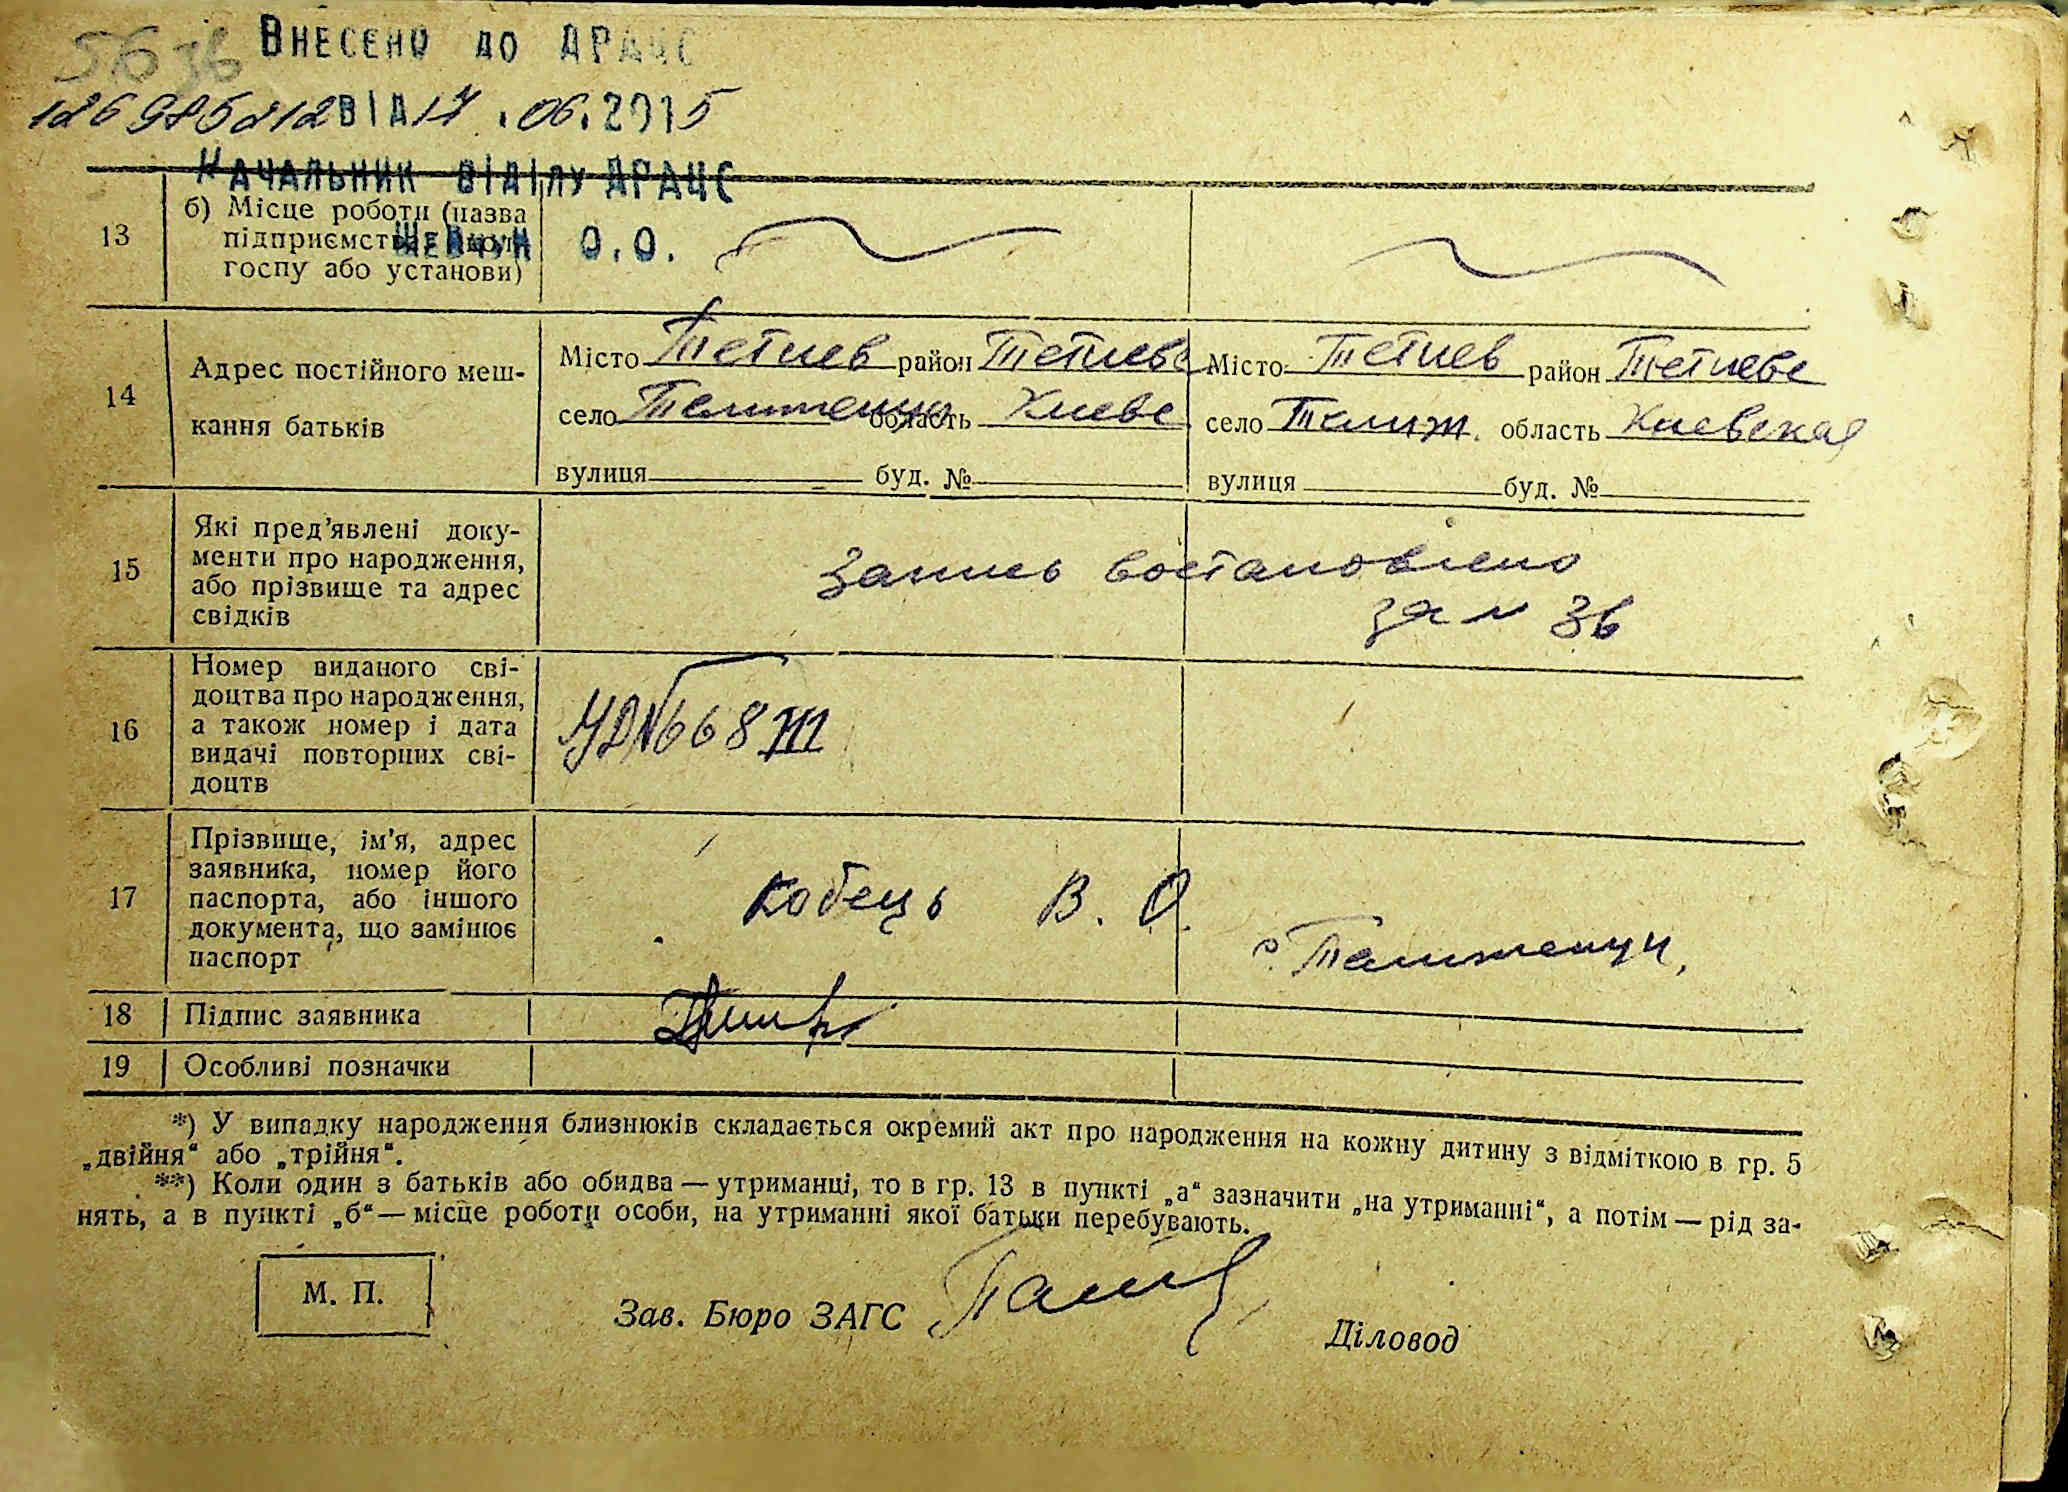 56 зв
ВНЕСЕНО ДО ДРАЦС
ВІД 17.06.2015
НАЧАЛЬНИК ВІДІЛУ ДРАЦС
О.О.
13
б) Місце роботи (назва
підприємства,
госпу або установи)
14
Адрес постійного меш-
кання батьків
Місто Тетиев район Тетиевс
село область Киевс
вулиця буд. №
Місто Тетиев район Тетиевс
село область Киевская
вулиця буд. №
15
Які пред'явлені доку-
менти про народження,
або прізвище та адрес
свідків
запись востановлено
за № 36
16
Номер виданого сві-
доцтва про народження,
а також номер і дата
видачі повторних сві-
доцтв
17
Прізвище, ім'я, адрес
заявника, номер його
паспорта, або іншого
документа, що замінює
паспорт
Кобець В. О.
18
Підпис заявника
19
Особливі позначки
*) У випадку народження близнюків складається окремий акт про народження на кожну дитину з відміткою в гр. 5
„двійня“ або „трійня“.
**) Коли один з батьків або обидва — утриманці, то в гр. 13 в пункті „а“ зазначити „на утриманні“, а потім — рід за-
нять, а в пункті „б“ — місце роботи особи, на утриманні якої батьки перебувають.
М. П.
Зав. Бюро ЗАГС
Діловод